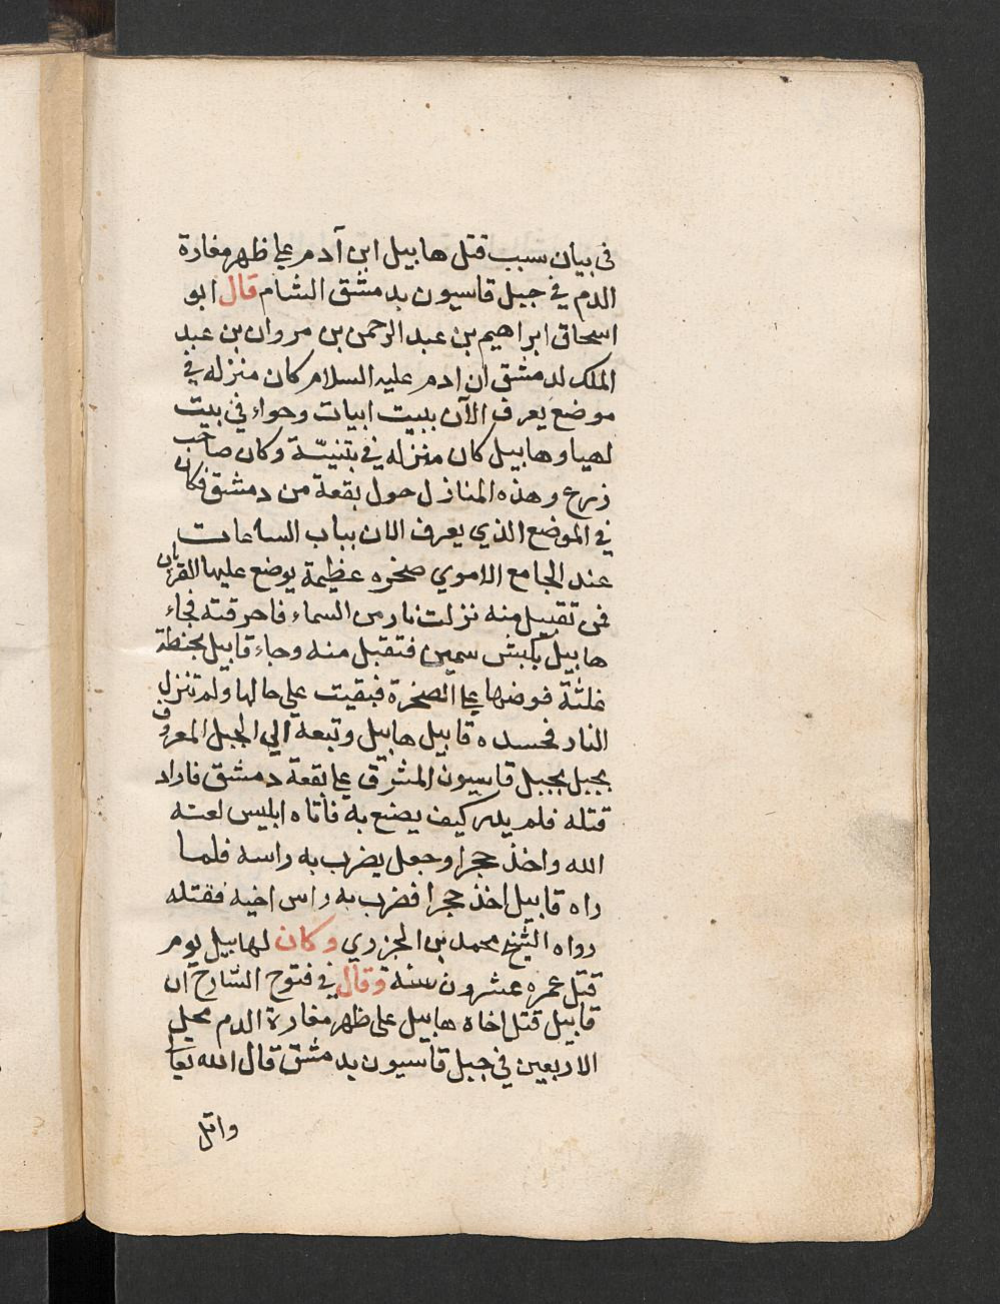 في بيان سبب قتل هابيل ابن آدم علي ظهر مغارة
الدم في جبل قاسيون بدمشق الشام قال ابو
اسحاق ابراهيم بن عبد الرحمن بن مروان بن عبد
الملك لدمشق ان ادم عليه السلام كان منزله في
موضع يعرف الآن ببيت ابيات وحواء في بيت
لهيا وهابيل كان منزله في بتنيّة وكان صاحب
زرع وهذه المنازل حول بقعة من دمشق فكان
في الموضع الذي يعرف الان بباب الساعات
عند الجامع الاموي صخره عظيمة يوضع عليها القربان
فمن تقبيل منه نزلت نار من السماء فاحرقته فجاء
هابيل بكبش سمين فتقبل منه وجاء قابيل بحنطة
غلثة فوضها علي الصخرة فبقيت على حالها ولم تنزل
النار فحسده قابيل هابيل وتبعة الي الجبل المعروف
بجبل بجبل قاسيون المشرق علي بقعة دمشق فاراد
قتله فلم يدر كيف يصنع به فأتاه ابليس لعنه
الله واخذ حجرا وجعل يضرب به راسه فلما
راه قابيل اخذ حجرا فضرب به راس اخيه فقتله
رواه الشيخ محمد بن الجزري وكان لهابيل يوم
قتل عمره عشرون سنة وقال في فتوح الشارح ان
قابيل قتل اخاه هابيل على ظهر مغارة الدم محل
الاربعين في جبل قاسيون بدمشق قال الله تعالي
واتل